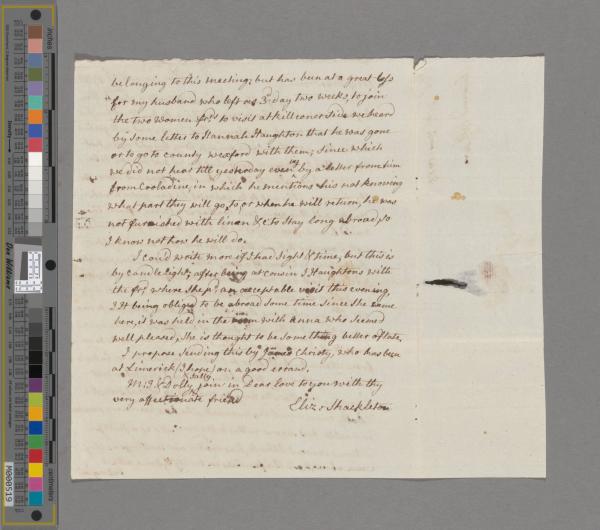 belonging to this meeting; but has been at a great loss
for my husband who left us 3d day two weeks, to join
the two women frds to visit at Killconer side we heard
by some letter to Hannah Haughton that he was gone
or to go to county Wexford with them; since which
we did not hear till yesterday eveng by a letter from him
from Cooladine, in which he mentions his not knowing
what part they will go to, or when he will return, he was
not furnished with linen &c to stay long abroad, so
I know not how he will do.
I coud write more if I had sight & time, but this is
by candle light, after being at cousin J Haughtons with
the frds where they had an acceptable visit this evening
it being obliged to be abroad some time since she came
here, it was held in the room with Anna who seemed
well pleased, she is thought to be something better of late.
I propose sending this by James Christy, who has been
at Limerick, I hope, on a good errand.
M: J: & Dolly join in Dear love to you with thy
very affectionate friend
Eliz: Shackleton
inches
centimeters
M000519
Don Williams